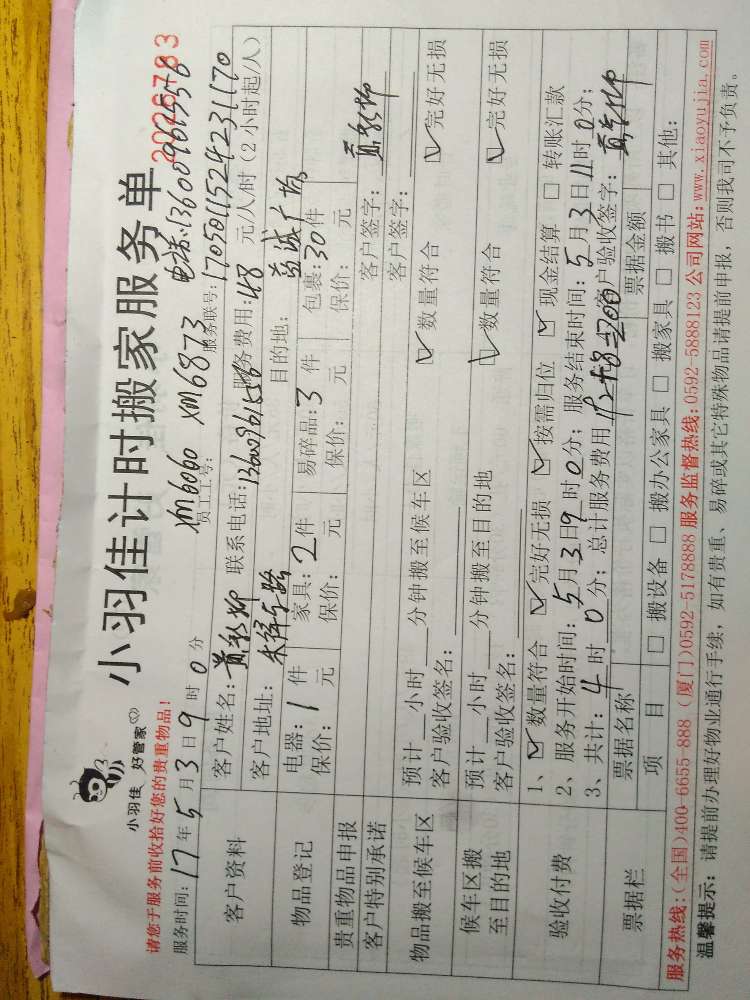 小羽佳 好管家
小羽佳计时搬家服务单
2026783
请您于服务前收拾好您的贵重物品!
XM6060 XM6873 电话:13600961556
服务时间:17年5月3日9时0分
员工工号:
服务联号:1705011524231170
客户资料
客户姓名: 联系电话:13600961556 服务费用:48元/人/时(2小时起/人)
客户地址: 目的地:益诚广场
物品登记
电器:1件 家具:2件 易碎品:3件 包裹:30件
保价: 元 保价: 元 保价: 元 保价: 元
贵重物品申报
客户签字:
客户特别承诺
客户签字:
物品搬至候车区
预计__小时__分钟搬至候车区 ☑数量符合 ☑完好无损
客户验收签名:
候车区搬至目的地
预计__小时__分钟搬至目的地 ☑数量符合 ☑完好无损
客户验收签名:
验收付费
1、☑数量符合 ☑完好无损 ☑按需归位 ☑现金结算 □转账汇款
2、服务开始时间:5月3日9时0分;服务结束时间:5月3日11时0分;
3、共计:4时0分;总计服务费用 客户验收签字:
票据栏
票据名称 票据金额
项目 □搬设备 □搬办公家具 □搬家具 □搬书 □其他:
服务热线:(全国)400-6655-888 (厦门)0592-5178888 服务监督热线:0592-5888123 公司网站:www.xiaoyujia.com
温馨提示:请提前办理好物业通行手续,如有贵重、易碎或其它特殊物品请提前申报,否则我司不予负责。